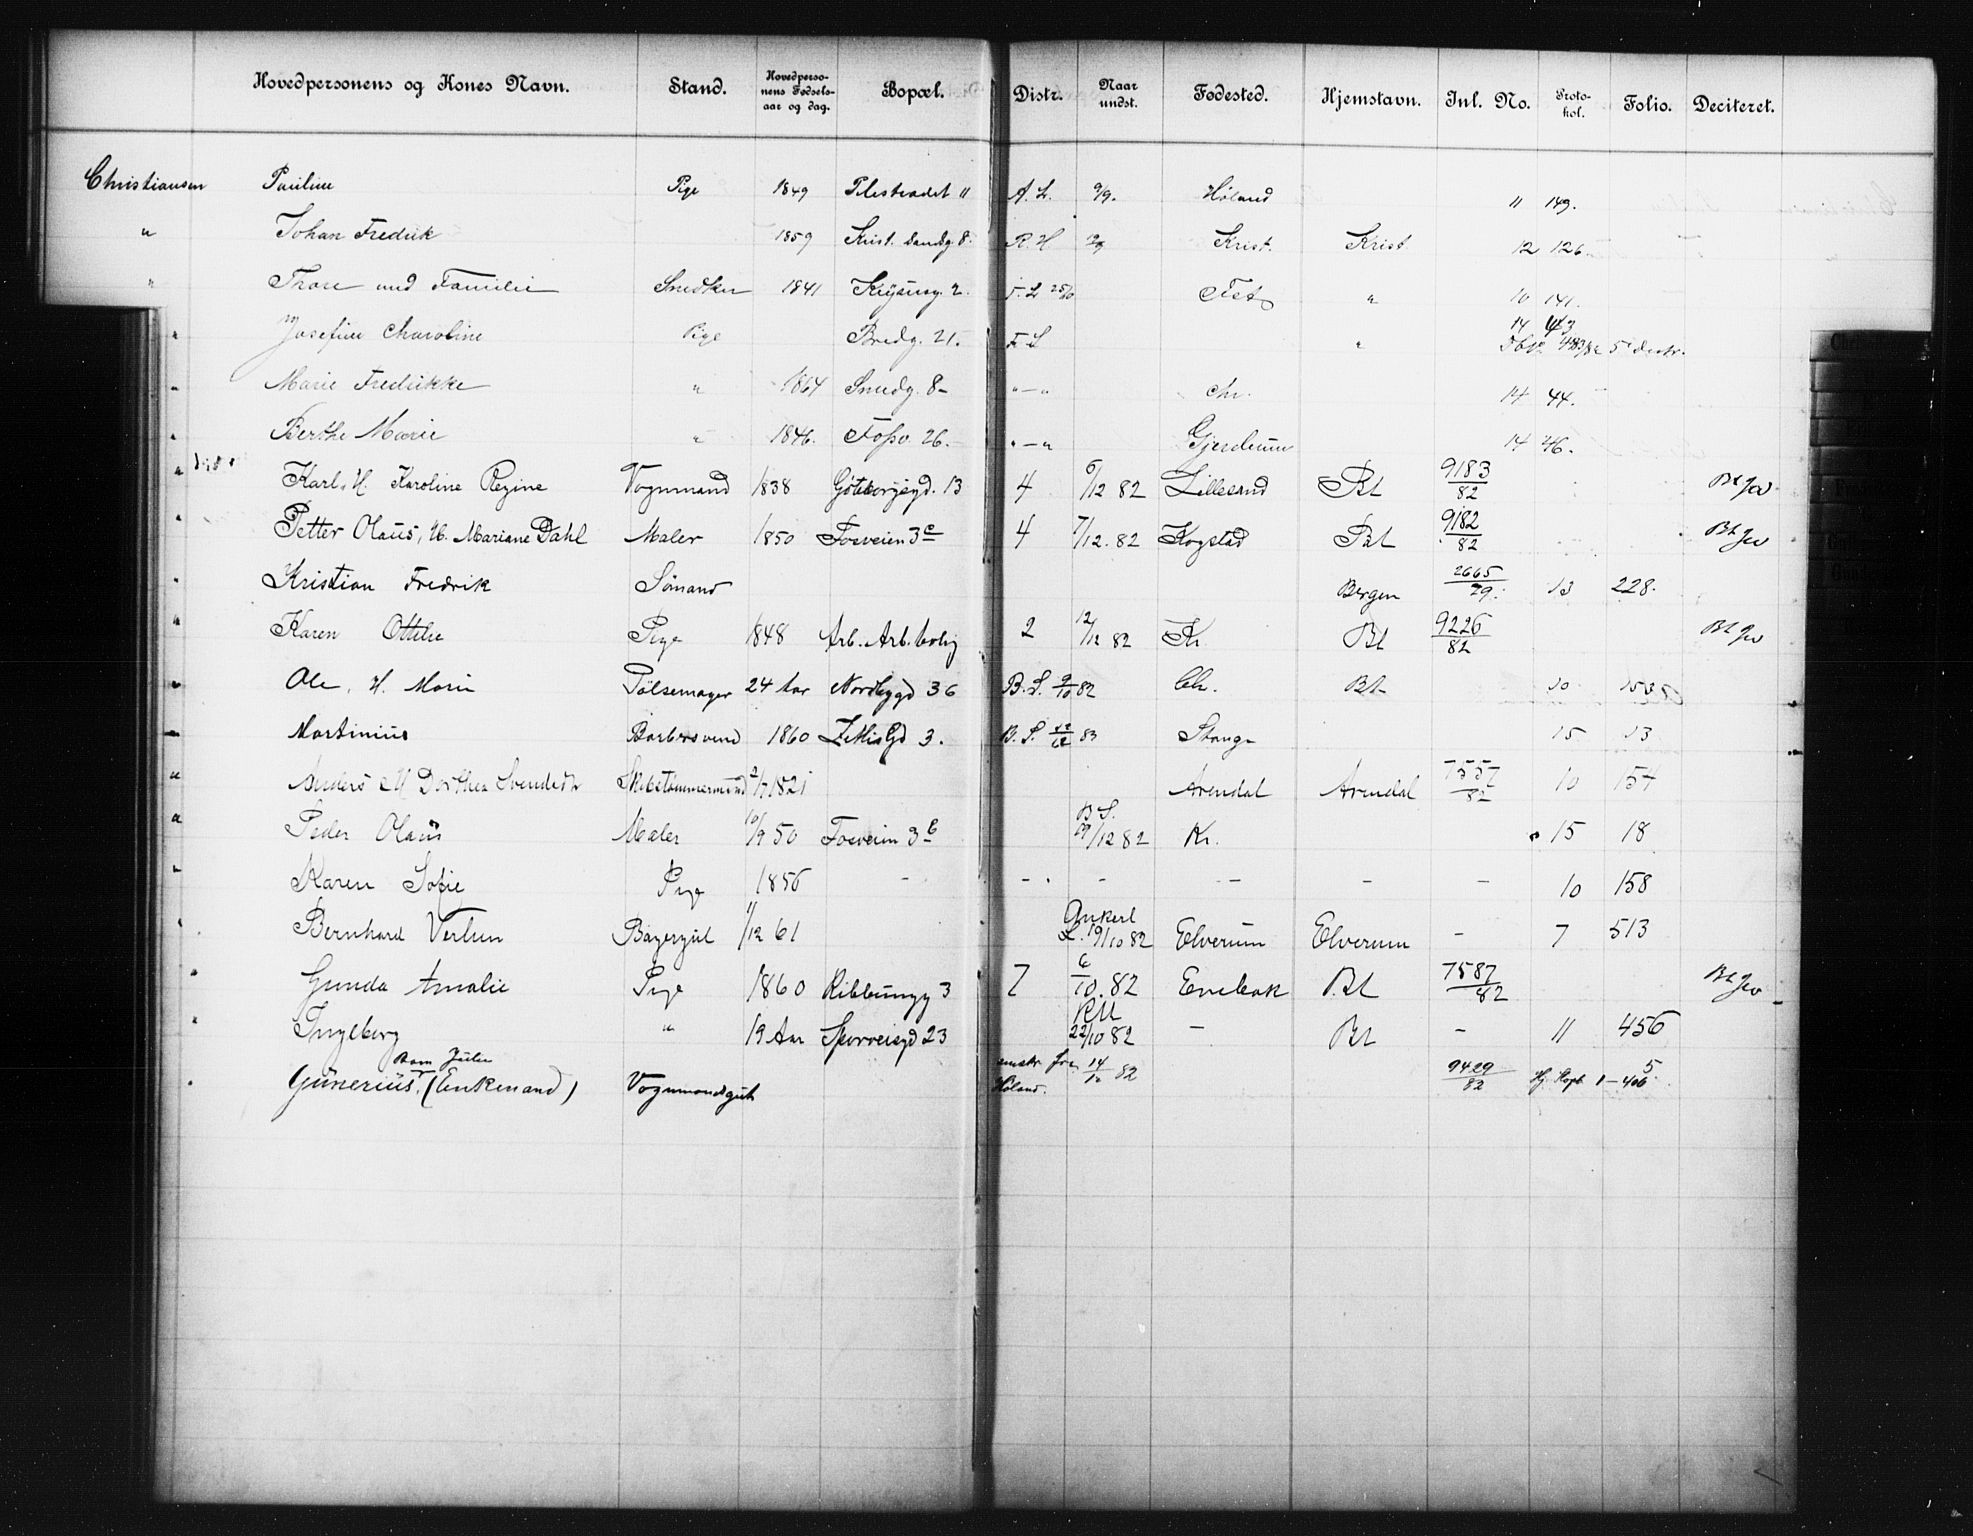 Hovedpersonens og Kones Navn. Stand. Hovedpersonens Fødselsaar og dag. Bopæl. Distr. Naar undst. Fødested. Hjemstavn. Inl. No. Protokol. Folio. Deciteret.
Christiansen Pauline Pige 1849 Pilestrædet 11 A. L. 9/9. Høland 11 149.
" Johan Fredrik 1859 R. H Krist. Krist 12 126
" Thore med Familie Snedker 1841 2. F. L 25/10 Fet " 10 141.
" Josefine Charoline Pige Bredg. 21. F. L " 14 43
" Marie Fredrikke " 1864 Smedg. 8 " — " Chr. 14 44.
" Berthe Marie " 1846. Fossv. 26. " — " Gjerdrum 14 46.
" Karl, H. Karoline Regine Vognmand 1838 Göteborggd. 13 4 6/12 82 Lillesand Bt 9183/82 Bt Jw
" Petter Olaus, H. Mariane Dahl Maler 1850 Fosveien 3 c 4 7/12. 82 Kogstad Bt 9182/82 Bt Jw
" Kristian Fredrik Sömand Bergen 2665/79. 13 228.
" Karen Ottilie Pige 1848 Arb. Arb. bolig 2 12/12 82 Kr. Bt 9226/82 Bt Jw
" Ole, H. Marie Pölsemager 24 Aar Nordbygd 36 B. S. 9/10 82 Ch. Bt 10 153
" Martinius Barbersvend 1860 3. B. S. 83 Stange 15 13
" Anders H Dorthea Svendsdtr Skibstømmermand 2/7 1821 Arendal Arendal 7557/82 10 154
" Peder Olaus Maler 10/9 50 Fosveien 3 c B S. 19/12 82 Kr. 15 18
Karen Sofie Pige 1856 - - - - - - - 10 158
Bernhard Bagergut 11/12 61 Ankerl L. 19/10 82 Elverum Elverum - 7 513
Gunda Amalie Pige 1860 Ribbungg 3 7 6/10. 82 Enebak Bt 7587/82 Bt Jw
Ingeborg " 19 Aar Sporveisgd 23 RM 22/10 82 - Bt - 11 456
Gunerius, (Enkemand) Vognmandsgut fra Høland. 14/12 82 9429/82 1 - 406 5